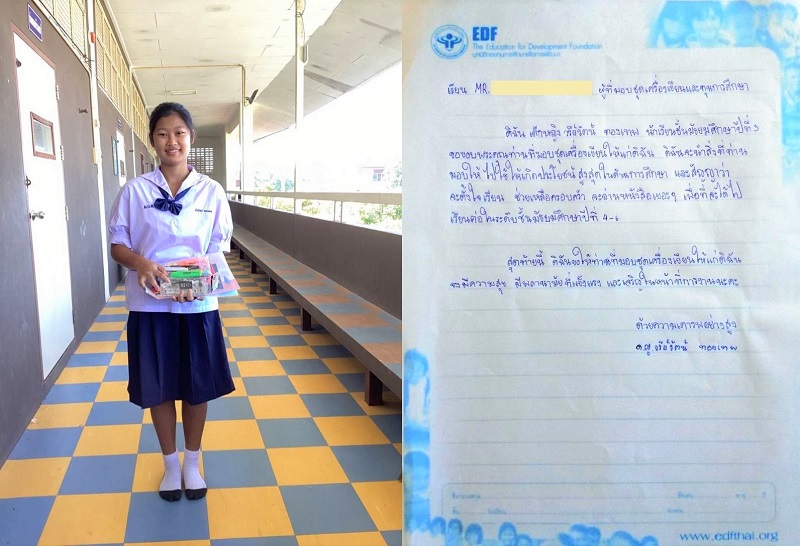 EDF
The Education for Development Foundation
มูลนิธิกองทุนการศึกษาเพื่อการพัฒนา
เรียน MR. ผู้ที่มอบชุดเครื่องเขียนและทุนการศึกษา
ดิฉัน เด็กหญิง ทองเทพ นักเรียนชั้นมัธยมศึกษาปีที่ 3
ขอขอบพระคุณท่านที่มอบชุดเครื่องเขียนให้แก่ดิฉัน ดิฉันจะนำสิ่งที่ท่าน
มอบให้ ไปใช้ให้เกิดประโยชน์สูงสุดในด้านการศึกษา และสัญญาว่า
จะตั้งใจเรียน ช่วยเหลือครอบครัว จะอ่านหนังสือเยอะๆ เพื่อที่จะได้ไป
เรียนต่อในระดับชั้นมัธยมศึกษาปีที่ 4-6
สุดท้ายนี้ ดิฉันขอให้ท่านที่มอบชุดเครื่องเขียนให้แก่ดิฉัน
จงมีความสุข มีพลานามัยที่แข็งแรง และเจริญในหน้าที่การงานนะคะ
ด้วยความเคารพอย่างสูง
ด.ญ. ทองเทพ
www.edfthai.org